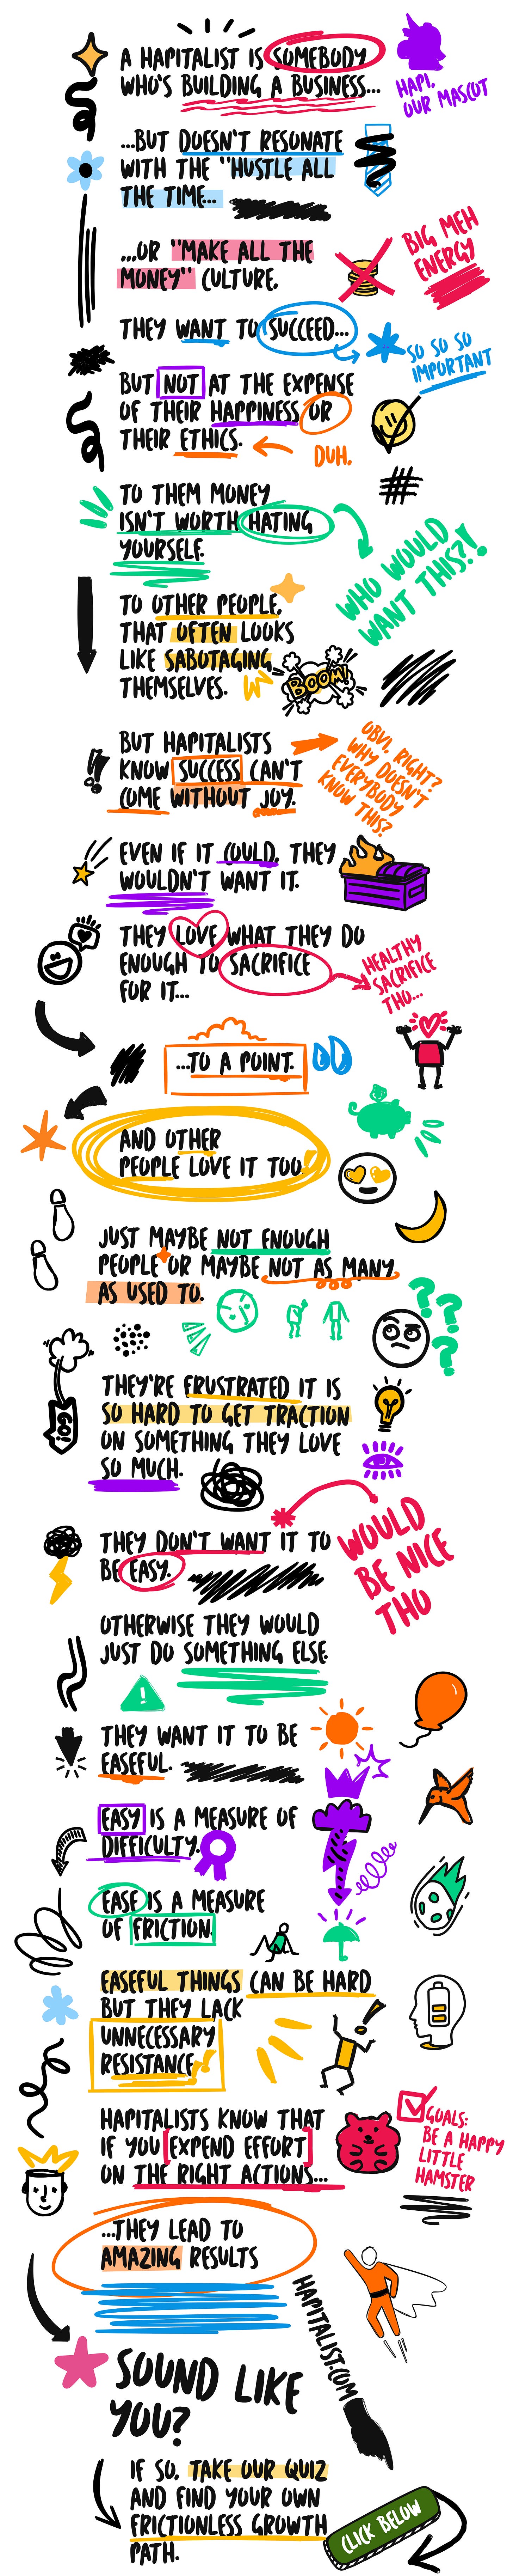 A HAPITALIST IS SOMEBODY
WHO'S BUILDING A BUSINESS...
HAPI,
OUR MASCOT
...BUT DOESN'T RESONATE
WITH THE "HUSTLE ALL
THE TIME...
...OR "MAKE ALL THE
MONEY" CULTURE.
BIG MEH
ENERGY
THEY WANT TO SUCCEED...
SO SO SO
IMPORTANT
BUT NOT AT THE EXPENSE
OF THEIR HAPPINESS OR
THEIR ETHICS.
DUH.
TO THEM MONEY
ISN'T WORTH HATING
YOURSELF.
WHO WOULD
WANT THIS?!
TO OTHER PEOPLE,
THAT OFTEN LOOKS
LIKE SABOTAGING
THEMSELVES.
BOOM!
BUT HAPITALISTS
KNOW SUCCESS CAN'T
COME WITHOUT JOY.
OBVI, RIGHT?
WHY DOESN'T
EVERYBODY
KNOW THIS?
EVEN IF IT COULD, THEY
WOULDN'T WANT IT.
THEY LOVE WHAT THEY DO
ENOUGH TO SACRIFICE
FOR IT...
HEALTHY
SACRIFICE
THO...
...TO A POINT.
AND OTHER
PEOPLE LOVE IT TOO!
JUST MAYBE NOT ENOUGH
PEOPLE OR MAYBE NOT AS MANY
AS USED TO.
???
GO!
THEY'RE FRUSTRATED IT IS
SO HARD TO GET TRACTION
ON SOMETHING THEY LOVE
SO MUCH.
THEY DON'T WANT IT TO
BE EASY.
WOULD
BE NICE
THO
OTHERWISE THEY WOULD
JUST DO SOMETHING ELSE.
!
THEY WANT IT TO BE
EASEFUL.
EASY IS A MEASURE OF
DIFFICULTY.
EASE IS A MEASURE
OF FRICTION.
EASEFUL THINGS CAN BE HARD
BUT THEY LACK
UNNECESSARY
RESISTANCE!!
HAPITALISTS KNOW THAT
IF YOU EXPEND EFFORT
ON THE RIGHT ACTIONS...
GOALS:
BE A HAPPY
LITTLE
HAMSTER
...THEY LEAD TO
AMAZING RESULTS
HAPITALIST.COM
SOUND LIKE
YOU?
IF SO, TAKE OUR QUIZ
AND FIND YOUR OWN
FRICTIONLESS GROWTH
PATH.
CLICK BELOW